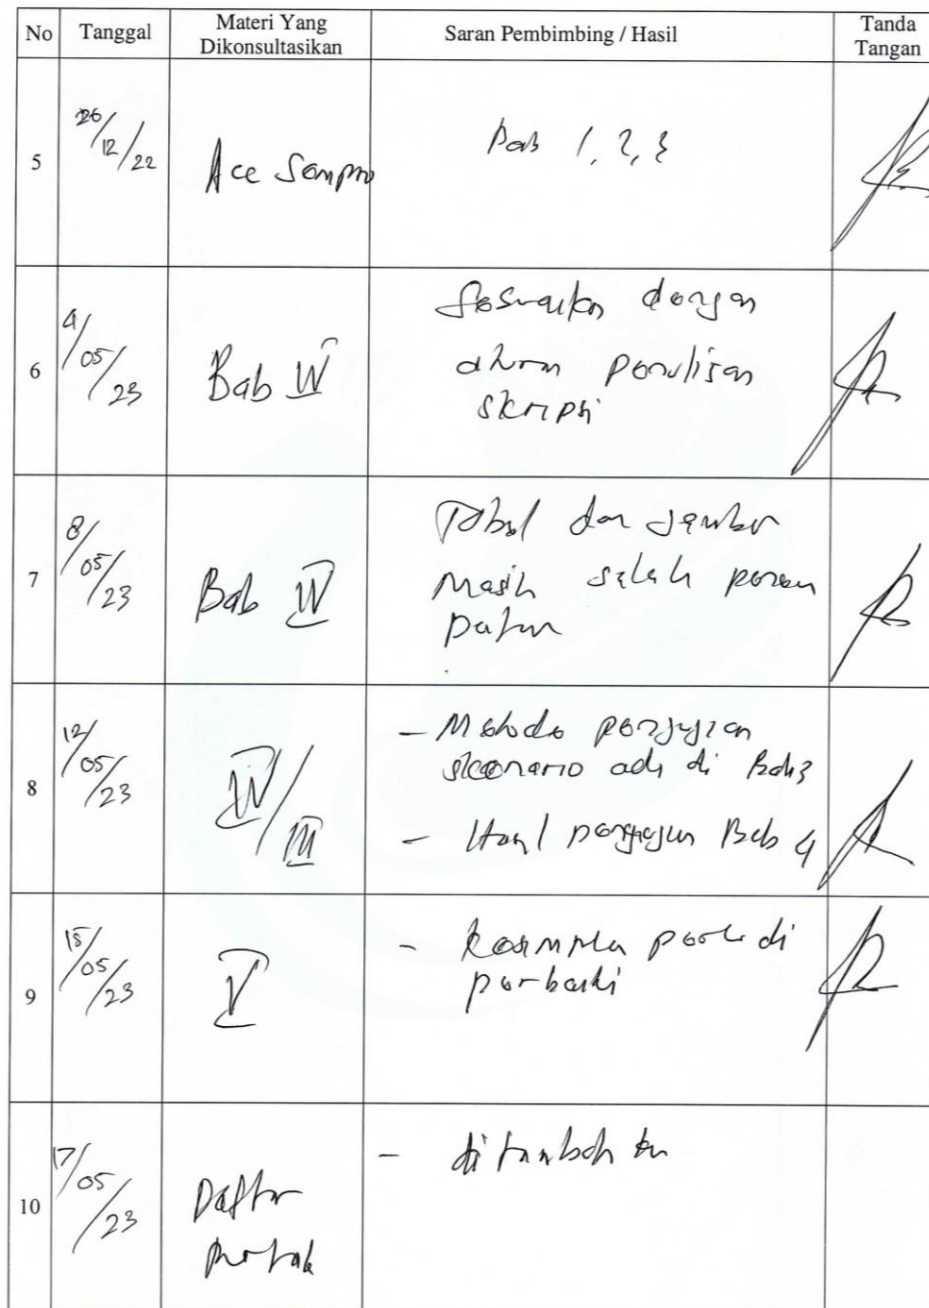 No Tanggal Materi Yang Dikonsultasikan Saran Pembimbing / Hasil Tanda Tangan
5 26/12/22 Acc Sempro Bab 1, 2, 3
6 4/05/23 Bab IV Sesuaikan dengan
aturan penulisan
skripsi
7 8/05/23 Bab IV Tabel dan gambar
masih salah
8 12/05/23 IV/III - Metode pengujian
skenario ada di Bab 3
- Hasil pengujian Bab 4
9 15/05/23 V - perlu di
perbaiki
10 17/05/23 Daftar - di tambah kan
Pustak